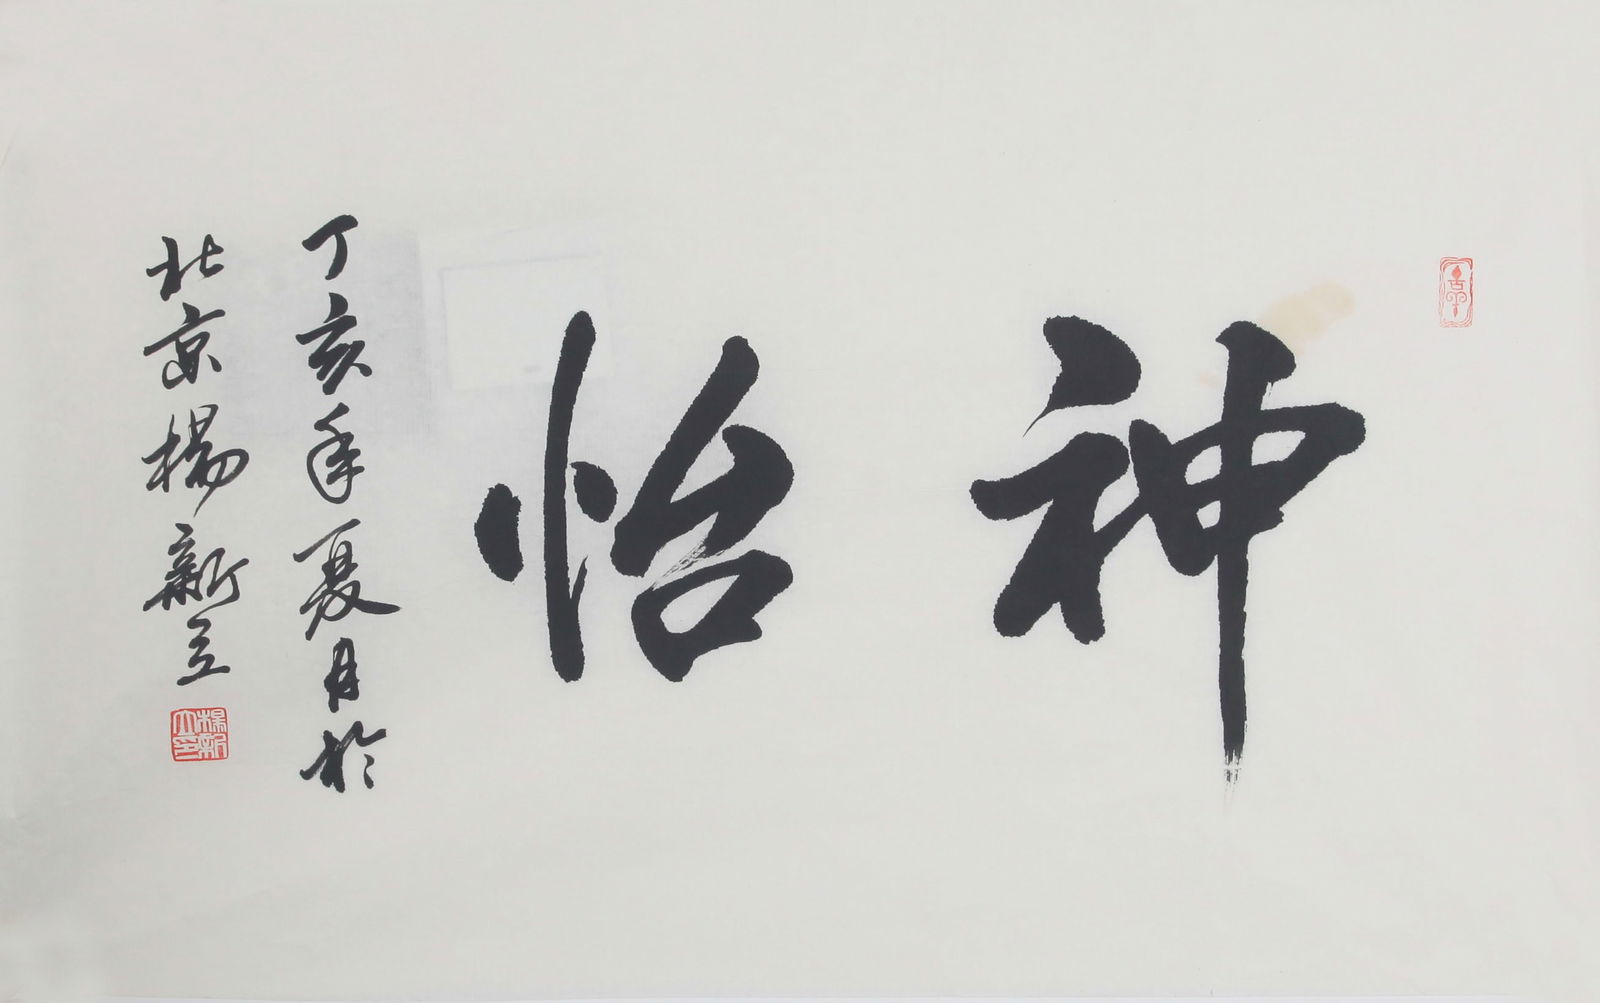 神怡
丁亥年夏月於
北京楊新立
楊新立印